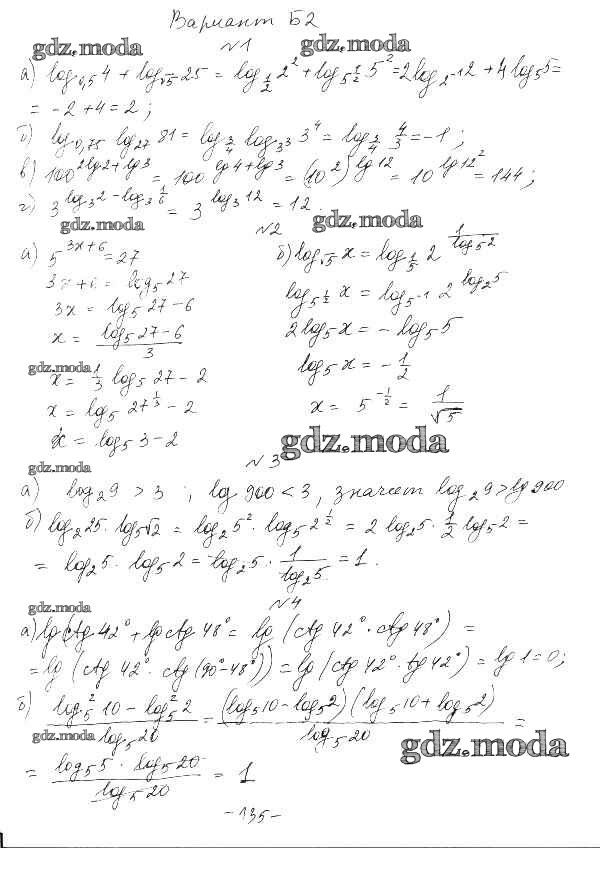 Вариант Б2
gdz.moda
gdz.moda
№1
а) log₀,₅4 + log_√5 25 = log_{1/2} 2² + log_{5^{1/2}} 5² = 2log₂-¹2 + 4log₅5 =
= -2 + 4 = 2;
б) log₀,₇₅ log₂₇ 81 = log_{3/4} log_{3³} 3⁴ = log_{3/4} 4/3 = -1;
в) 100^{2lg2+lg3} = 100^{lg4+lg3} = (10²)^{lg12} = 10^{lg12²} = 144;
г) 3^{log₃2 - log₃ 1/6} = 3^{log₃12} = 12.
gdz.moda
gdz.moda
№2
а) 5^{3x+6} = 27
3x+6 = log₅27
3x = log₅27 - 6
x = (log₅27 - 6)/3
gdz.moda
x = 1/3 log₅27 - 2
x = log₅27^{1/3} - 2
x = log₅3 - 2
б) log_√5 x = log_{1/5} 2^{1/log₅2}
log_{5^{1/2}} x = log_{5^{-1}} 2^{log₂5}
2log₅x = -log₅5
log₅x = -1/2
x = 5^{-1/2} = 1/√5
gdz.moda
gdz.moda
№3
а) log₂9 > 3; lg900 < 3, значит log₂9 > lg900
б) log₂25 · log₅√2 = log₂5² · log₅2^{1/2} = 2log₂5 · 1/2 log₅2 =
= log₂5 · log₅2 = log₂5 · 1/log₂5 = 1.
gdz.moda
№4
а) lg ctg42° + lg ctg48° = lg(ctg42° · ctg48°) =
= lg(ctg42° · ctg(90°-48°)) = lg(ctg42° · tg42°) = lg1 = 0;
б) (log₅²10 - log₅²2)/log₅20 = (log₅10 - log₅2)(log₅10 + log₅2)/log₅20 =
gdz.moda
gdz.moda
= (log₅5 · log₅20)/log₅20 = 1
-135-